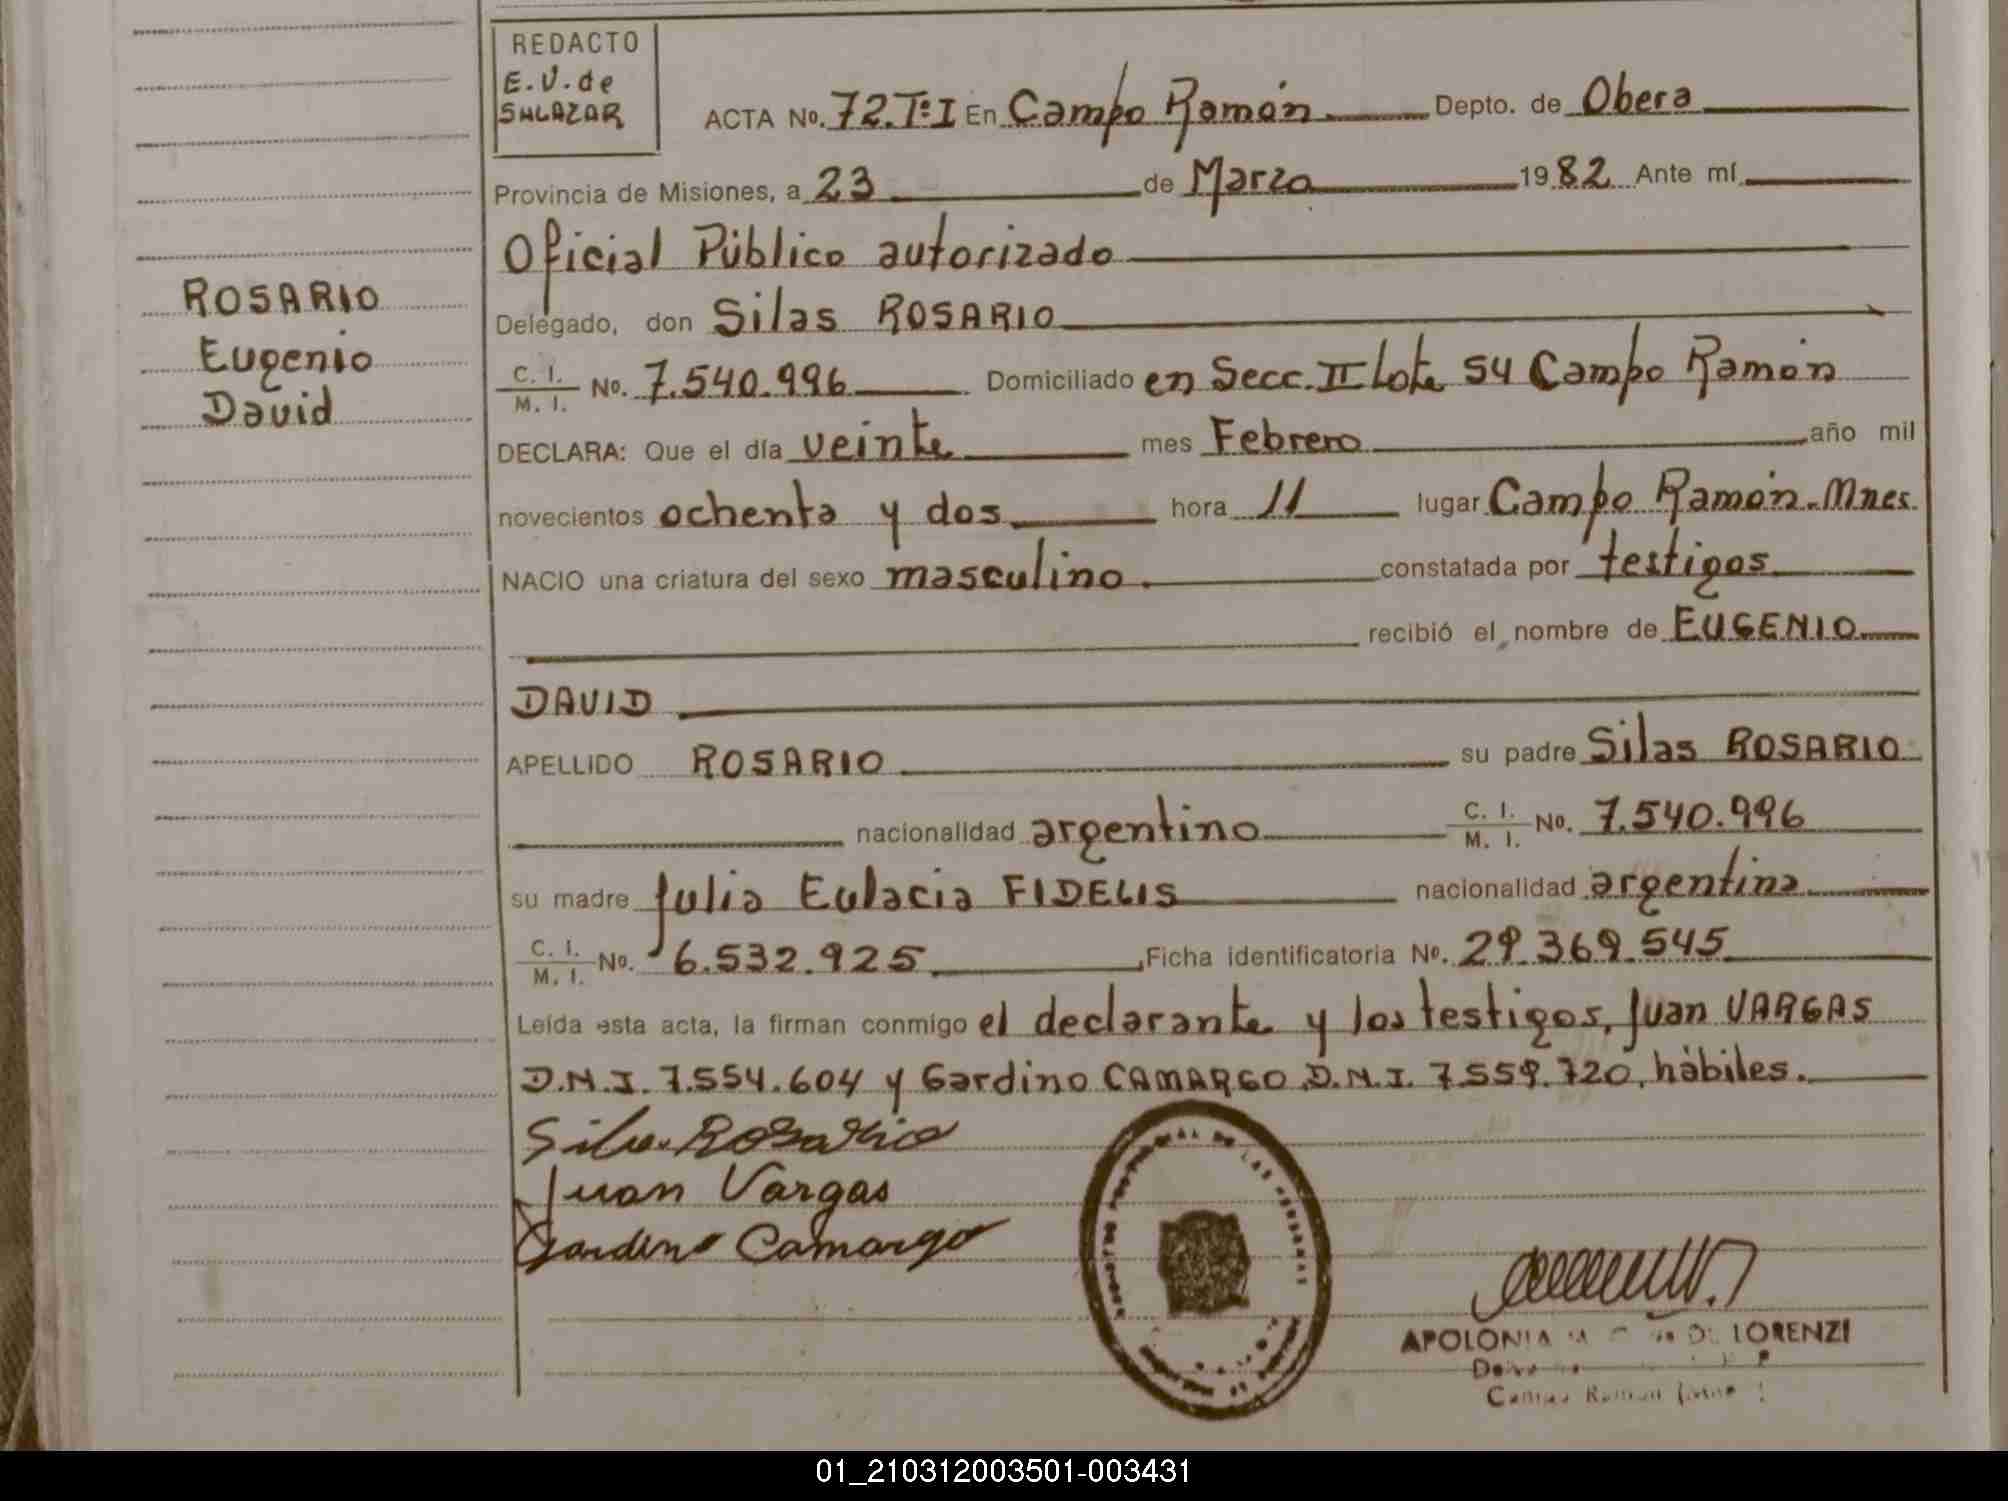 REDACTO
E.V. de
SALAZAR
ACTA No. 72.Tº I En Campo Ramón Depto. de Obera
Provincia de Misiones, a 23 de Marzo 1982 Ante mí
Oficial Público autorizado
Delegado, don Silas ROSARIO
C. I.
M. I. No. 7.540.996 Domiciliado en Secc. II Lote 54 Campo Ramón
DECLARA: Que el día veinte mes Febrero año mil
novecientos ochenta y dos hora 11 lugar Campo Ramón-Mnes.
NACIO una criatura del sexo masculino. constatada por testigos
recibió el nombre de EUGENIO
DAVID
APELLIDO ROSARIO su padre Silas ROSARIO
nacionalidad argentino C. I. M. I. No. 7.540.996
su madre Julia Eulacia FIDELIS nacionalidad argentina
C. I.
M. I. No. 6.532.925 Ficha identificatoria No. 29.369.545
Leída esta acta, la firman conmigo el declarante y los testigos, Juan VARGAS
D.N.I. 7.554.604 y Gardino CAMARGO D.N.I. 7.559.720, hábiles.
Silas Rosario
Juan Vargas
Gardino Camargo
APOLONIA LORENZI
Campo Ramon
ROSARIO
Eugenio
David
01_210312003501-003431